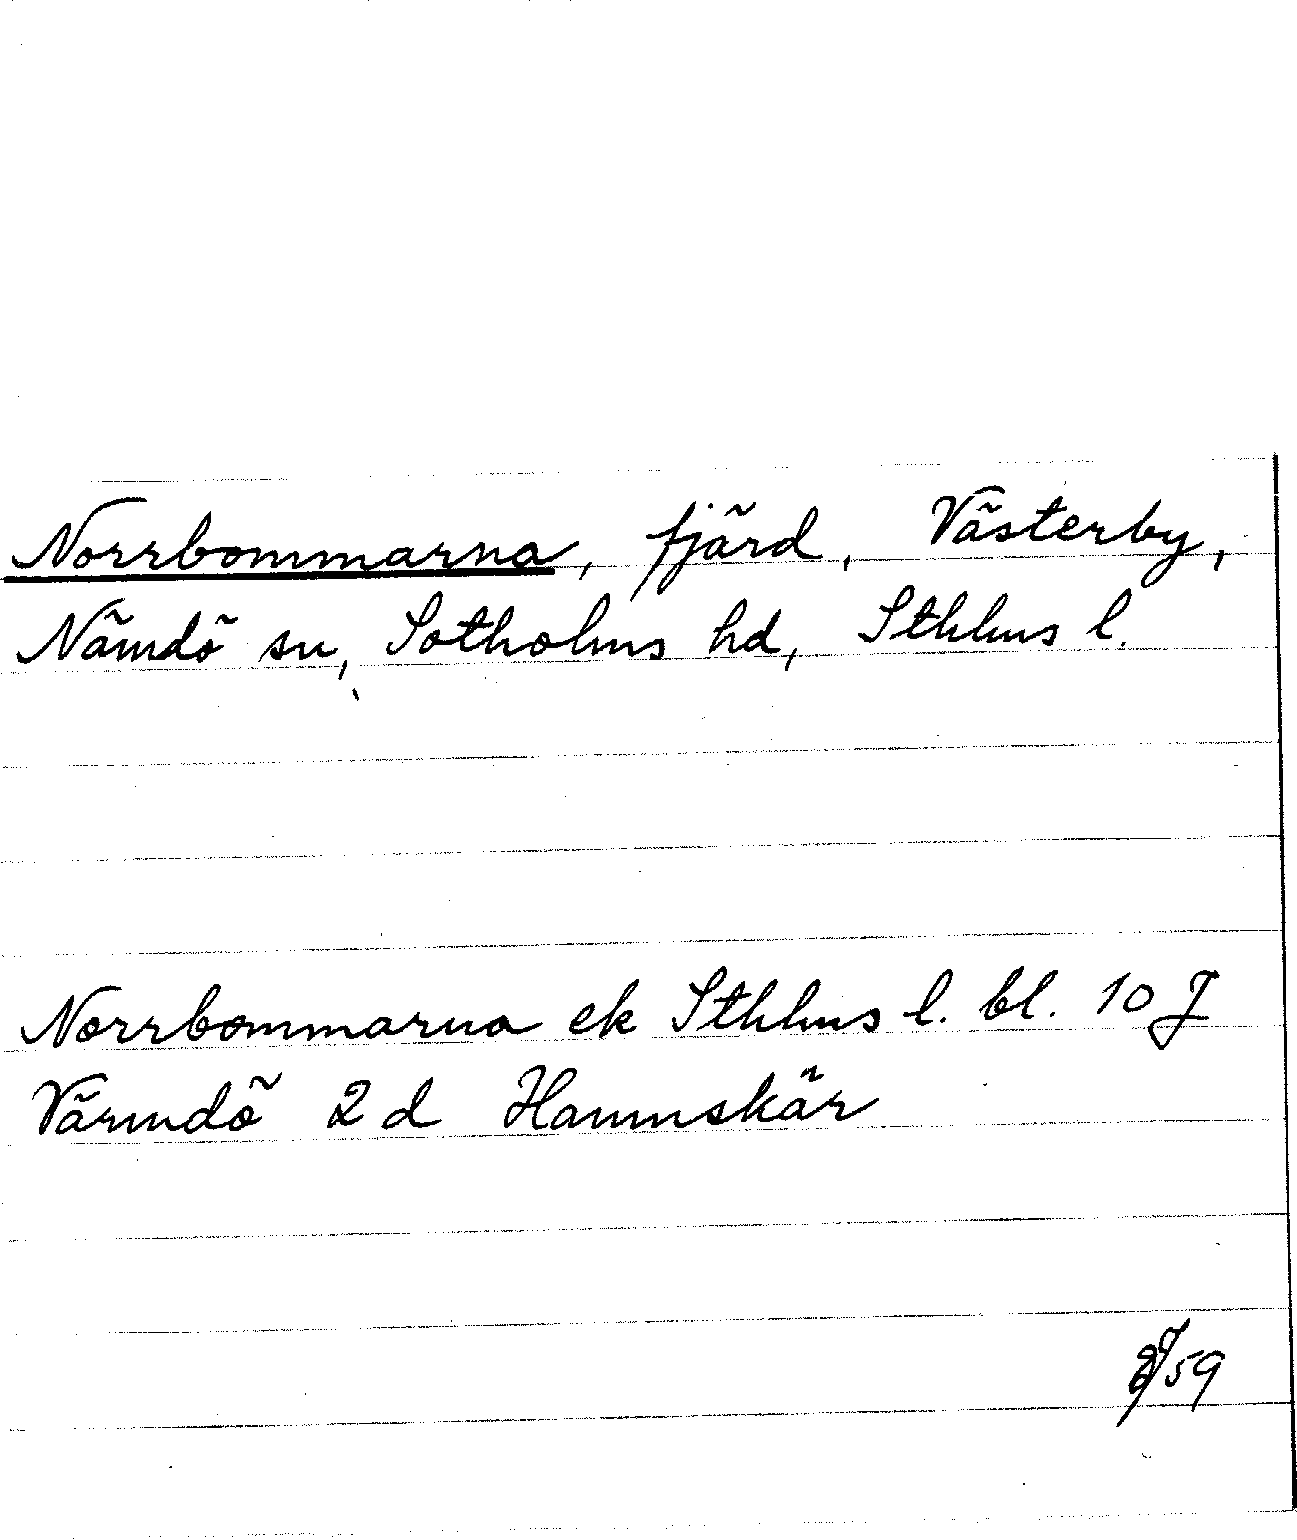 Norrbommarna, fjärd, Västerby,
Nämdö sn, Sotholms hd, Sthlms l.
Norrbommarna ek Sthlms l. bl. 10 J
Värmdö 2 d Hamnskär
59